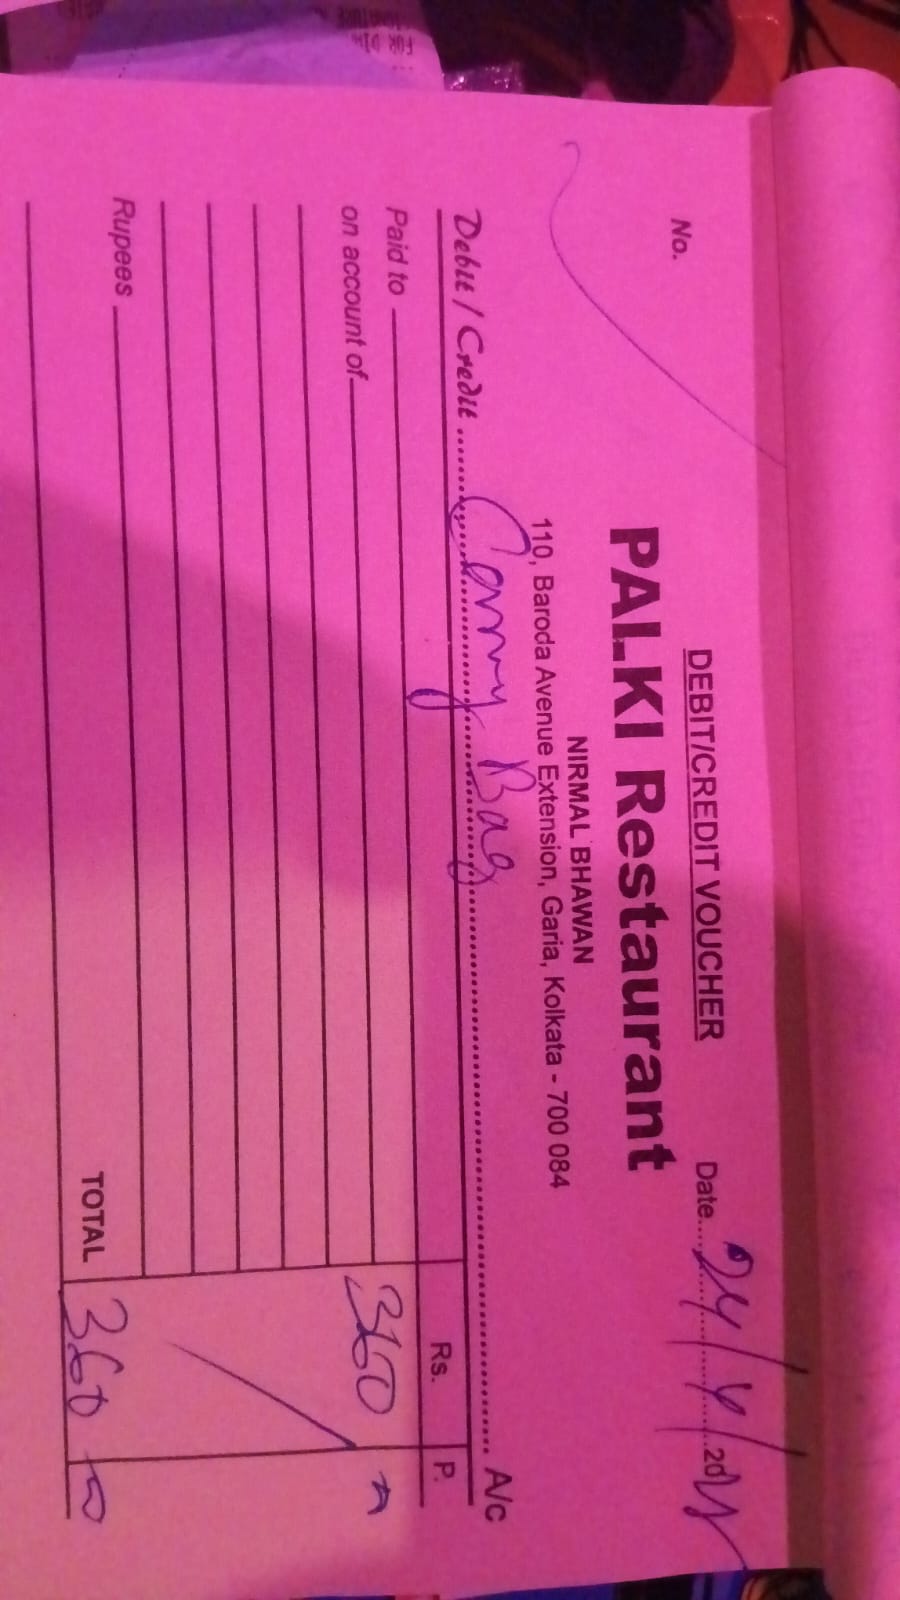 DEBIT/CREDIT VOUCHER
No.
Date 24/4/20
PALKI Restaurant
NIRMAL BHAWAN
110, Baroda Avenue Extension, Garia, Kolkata - 700 084
Debit / Credit Carry Bag A/c
Rs. P.
Paid to
on account of 360
Rupees
TOTAL 360 0